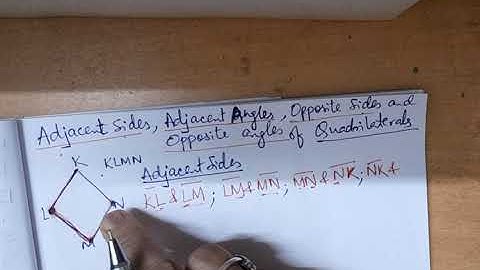 Adjacent Sides, Adjacent Angles, Opposite Sides and
Opposite angles of Quadrilaterals
K
KLMN
Adjacent Sides
KL & LM ; LM & MN ; MN & NK ; NK &
L
N
M